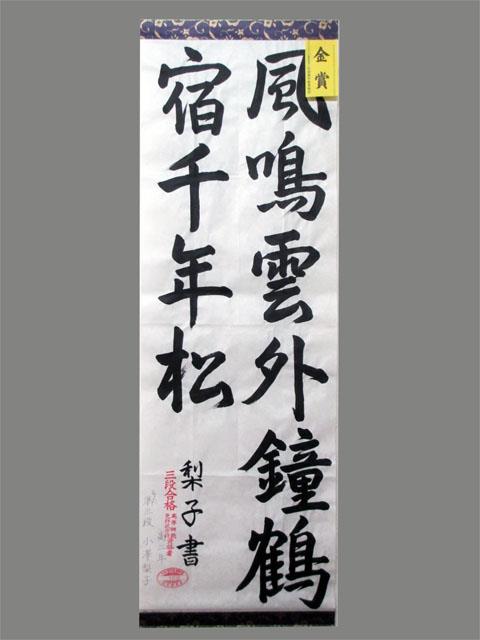 金賞
風鳴雲外鐘鶴
宿千年松
梨子書
三段合格
高二年
準三段 小澤梨子